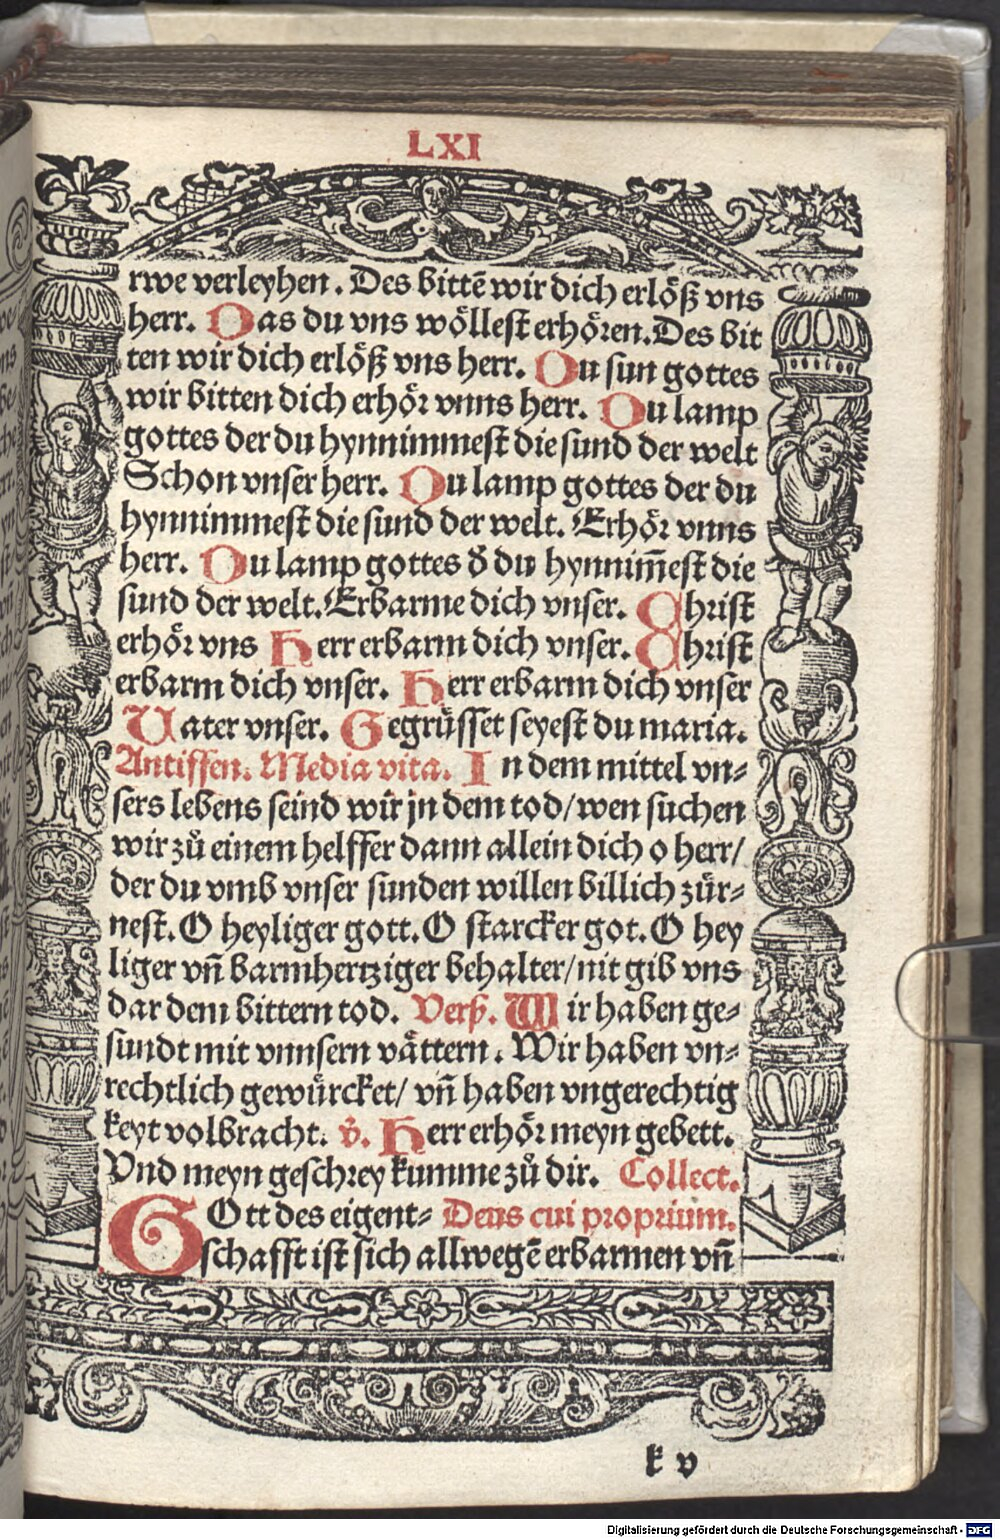 LXI
rwe verleyhen. Des bittē wir dich erlöß vns
herr. Das du vns wöllest erhören. Des bit
ten wir dich erlöß vns herr. Du sun gottes
wir bitten dich erhör vnns herr. Du lamp
gottes der du hynnimmest die sund der welt
Schon vnser herr. Du lamp gottes der du
hynnimmest die sund der welt. Erhör vnns
herr. Du lamp gottes ð du hynnim̄est die
sund der welt. Erbarme dich vnser. Christ
erhör vns Herr erbarm dich vnser. Christ
erbarm dich vnser. Herr erbarm dich vnser
Vater vnser. Gegrüsset seyest du maria.
Antiffen. Media vita. In dem mittel vn⸗
sers lebens seind wir jn dem tod/ wen suchen
wir zů einem helffer dann allein dich o herr/
der du vmb vnser sunden willen billich zür⸗
nest. O heyliger gott. O starcker got. O hey
liger vn̄ barmhertziger behalter/ nit gib vns
dar dem bittern tod. Verß. Wir haben ge⸗
sundt mit vnnsern vättern. Wir haben vn⸗
rechtlich gewürcket/ vn̄ haben vngerechtig
keyt volbracht. v̉. Herr erhör meyn gebett.
Vnd meyn geschrey kumme zů dir. Collect.
GOtt des eigent⸗ Deus cui proprium.
schafft ist sich allwegē erbarmen vn̄
k v
Digitalisierung gefördert durch die Deutsche Forschungsgemeinschaft - DFG